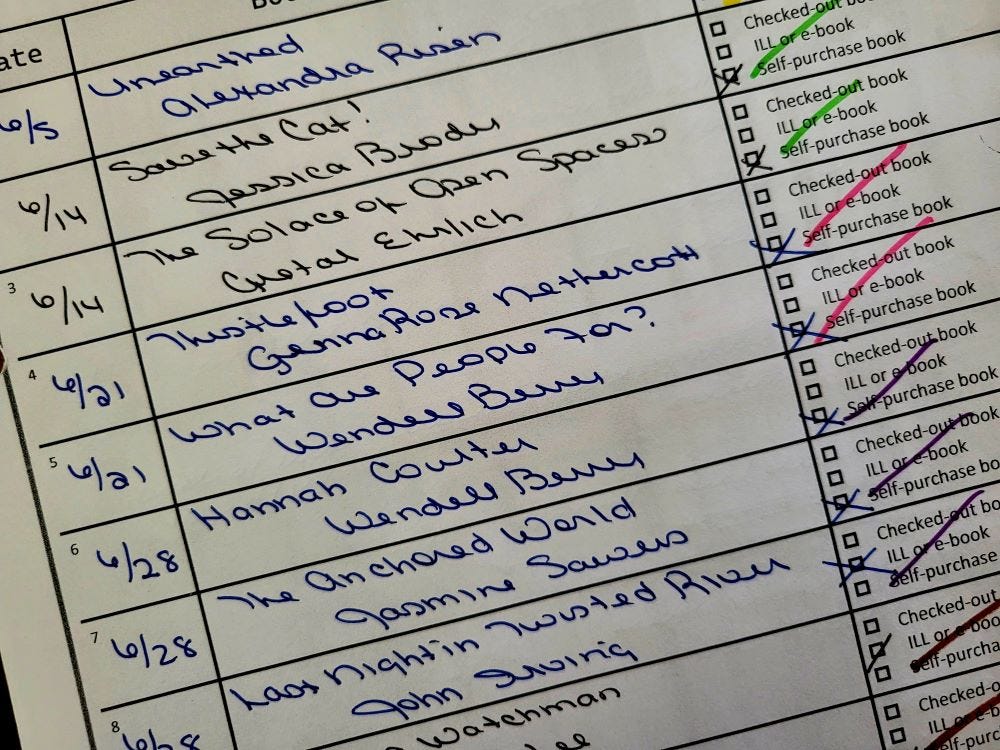 ate
6/5
Unearthed
Alexandra Risen
Checked-out
ILL or e-book
Self-purchase book
6/14
Save the Cat!
Jessica Brody
Checked-out book
ILL or e-book
Self-purchase book
3
6/14
The Solace of Open Spaces
Gretal Ehrlich
Checked-out book
ILL or e-book
Self-purchase book
4
6/21
Thistlefoot
GennaRose Nethercott
Checked-out book
ILL or e-book
Self-purchase book
5
6/21
What are People For?
Wendell Berry
Checked-out book
ILL or e-book
Self-purchase book
6
6/28
Hannah Coulter
Wendell Berry
Checked-out book
ILL or e-book
Self-purchase bo
7
6/28
The Anchored World
Jasmine Sawers
Checked-out bo
ILL or e-book
Self-purchase
8
6/28
Last Night in Twisted River
John Irving
Checked-out
ILL or e-boo
Self-purcha
Watchman
Checked-o
ILL or e-b
elf-purc